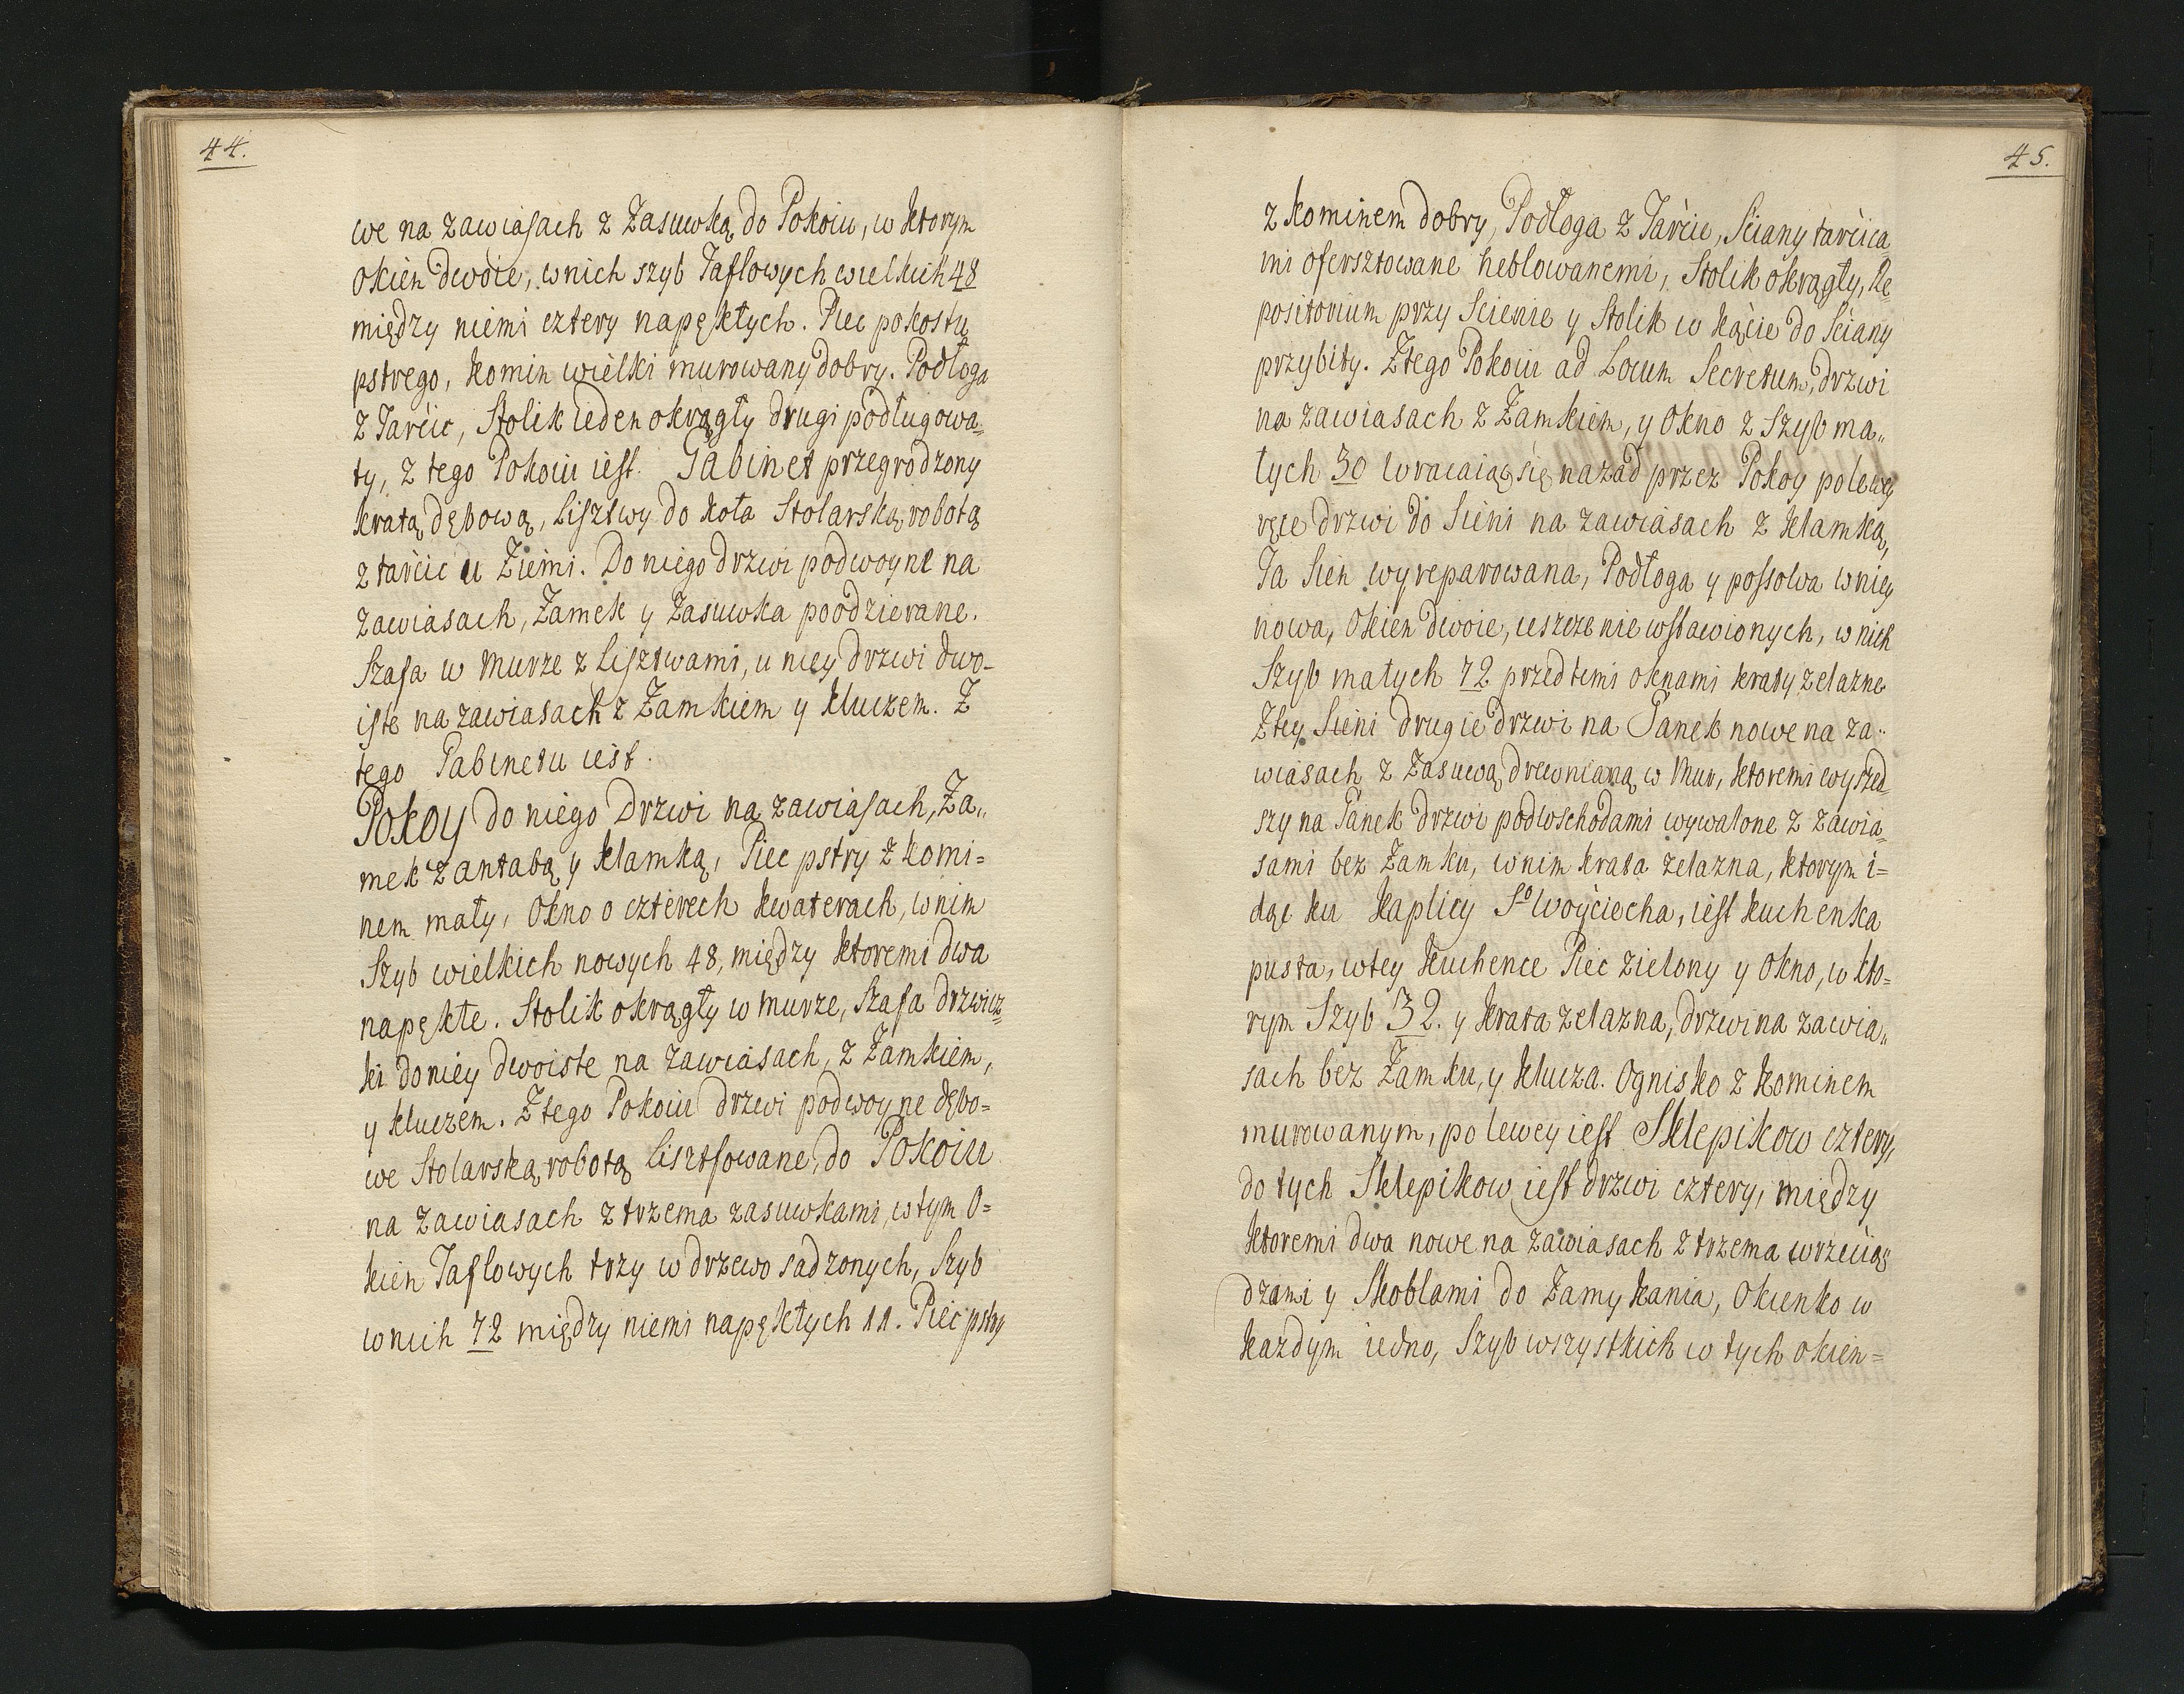 44.
we na zawiasach z Zasuwką do Pokoiu, w ktorym
okien dwoie, wnich szyb Taflowych wielkich 48
między niemi cztery napękłych. Piec pokostu
pstrego, komin wielki murowany dobry. Podłoga
z Tarćic, Stolik ieden okrągły drugi podługowa=
ty, z tego Pokoiu iest. Gabinet przegrodzony
kratą dębową, Lisztwy do koła Stolarską robotą
z tarćic u Ziemi. Do niego drzwi podwoyne na
zawiasach, Zamek y Zasuwka poodzierane.
Szafa w Murze z Lisztwami, u niey drzwi dwo-
iste na zawiasach z Zamkiem y kluczem. Z
tego Gabinetu iest.
Pokoy do niego Drzwi na zawiasach, Za„
mek z antabą y klamką, Piec pstry z komi=
nem mały, Okno o czterech kwaterach, wnim
Szyb wielkich nowych 48, między ktoremi dwa
napękłe. Stolik okrągły w murze, Szafa drzwicz=
ki do niey dwoiste na zawiasach, z Zamkiem,
y kluczem. Z tego Pokoiu drzwi podwoyne dębo=
we Stolarską robotą Lisztfowane, do Pokoiu
na zawiasach z trzema zasuwkami, wtym O=
kien Taflowych trzy w drzewo sadzonych, Szyb
wnich 72 między niemi napękłych 11. Piec pstry
45.
z kominem dobry, Podłoga z Tarcic, Sciany tarćica
mi ofersztowane heblowanemi, Stolik okrągły, Re=
positorium przy Scienie y Stolik w kącie do Sciany
przybity. Ztego Pokoiu ad Locum Secretum, drzwi
na zawiasach z Zamkiem, y Okno z Szyb ma„
łych 30 wracaiąc się nazad przez Pokoy po lewey
ręce drzwi do Sieni na zawiasach z klamką,
Ta Sien wyreparowana, Podłoga y possowa w niey
nowa, Okien dwoie, ieszcze nie wstawionych, w nich
Szyb małych 72 przed temi oknami kraty zelazne
Z tey Sieni drugie drzwi na Ganek nowe na za„
wiasach z Zasuwą drewnianą w Mur, ktoremi wyszed=
szy na Ganek drzwi pod wschodami wywalone z zawia=
sami bez Zamku, wnim krata zelazna, ktorym i=
dąc ku Kaplicy S° Woyciecha, iest kuchenka
pusta, wtey kuchence Piec zielony y Okno, w kto=
rym Szyb 32. y krata zelazna, drzwi na zawia„
sach bez Zamku, y klucza. Ognisko z kominem
murowanym, po lewey iest Sklepikow cztery,
do tych Sklepikow iest drzwi cztery, między
ktoremi dwa nowe na zawiasach z trzema wrzecią=
dzami y Skoblami do Zamykania, Okienko w
kazdym iedno, Szyb wszystkich w tych okien=